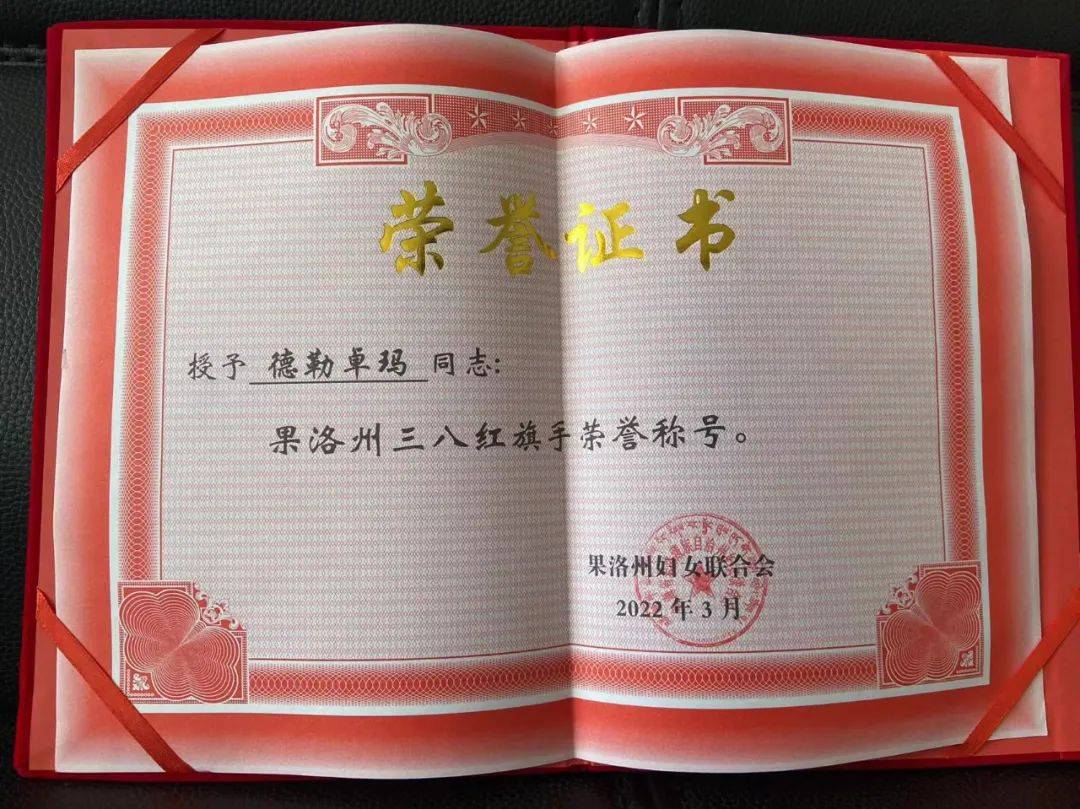 荣誉证书
授予 德勒卓玛 同志:
果洛州三八红旗手荣誉称号。
果洛州妇女联合会
2022 年 3 月